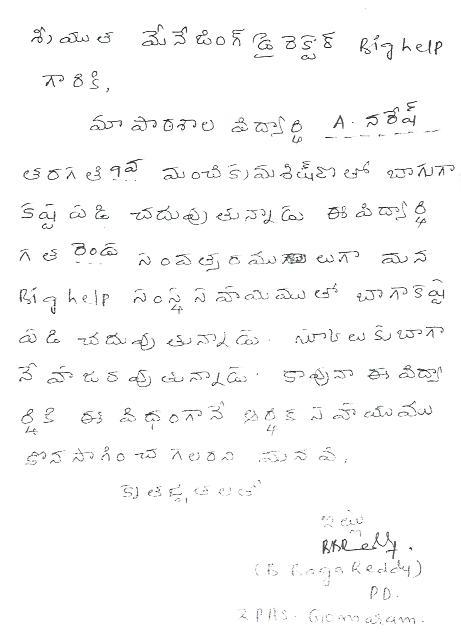 శ్రీయుత మేనేజింగ్ డైరెక్టర్ Big help
గారికి,
మా పాఠశాల విద్యార్థి A. నరేష్
తరగతి 9వ మంచి క్రమశిక్షణతో బాగుగా
కష్టపడి చదువుతున్నాడు ఈ విద్యార్థి
గత రెండు సంవత్సరములుగా మన
Big help సంస్థ సహాయముతో బాగా కష్ట
పడి చదువుతున్నాడు. స్కూలుకు బాగా
నే హాజరవుతున్నాడు. కావునా ఈ విద్యా
ర్థికి ఈ విధంగానే ఆర్థిక సహాయము
కొనసాగించగలరని మనవి.
కృతజ్ఞతలతో
ఇట్లు
(B Raga Reddy)
P.D.
Z.P.H.S. Gomaram.